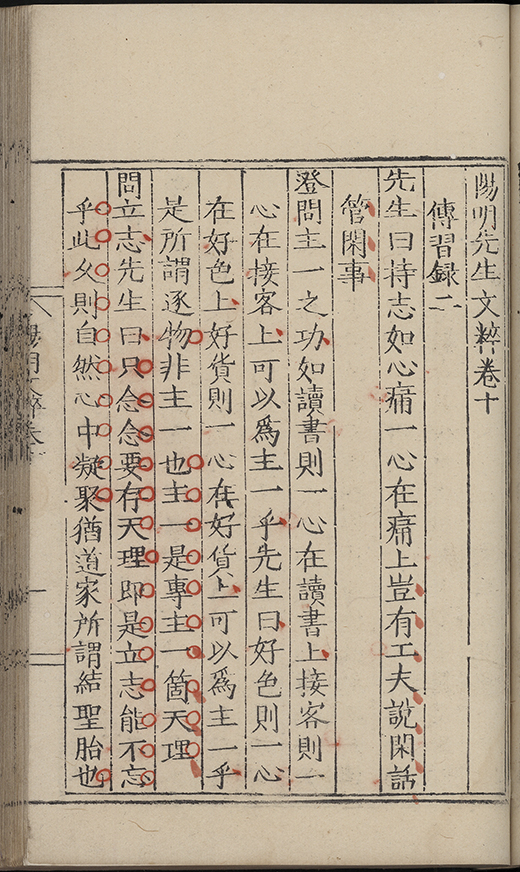 陽明先生文粹卷十
傳習録二
先生曰持志如心痛一心在痛上豈有工夫說閑話
管閑事
澄問主一之功如讀書則一心在讀書上接客則一
心在接客上可以爲主一乎先生曰好色則一心
在好色上好貨則一心在好貨上可以爲主一乎
是所謂逐物非主一也主一是專主一箇天理
問立志先生曰只念念要存天理即是立志能不忘
乎此乆則自然心中凝聚猶道家所謂結聖胎也